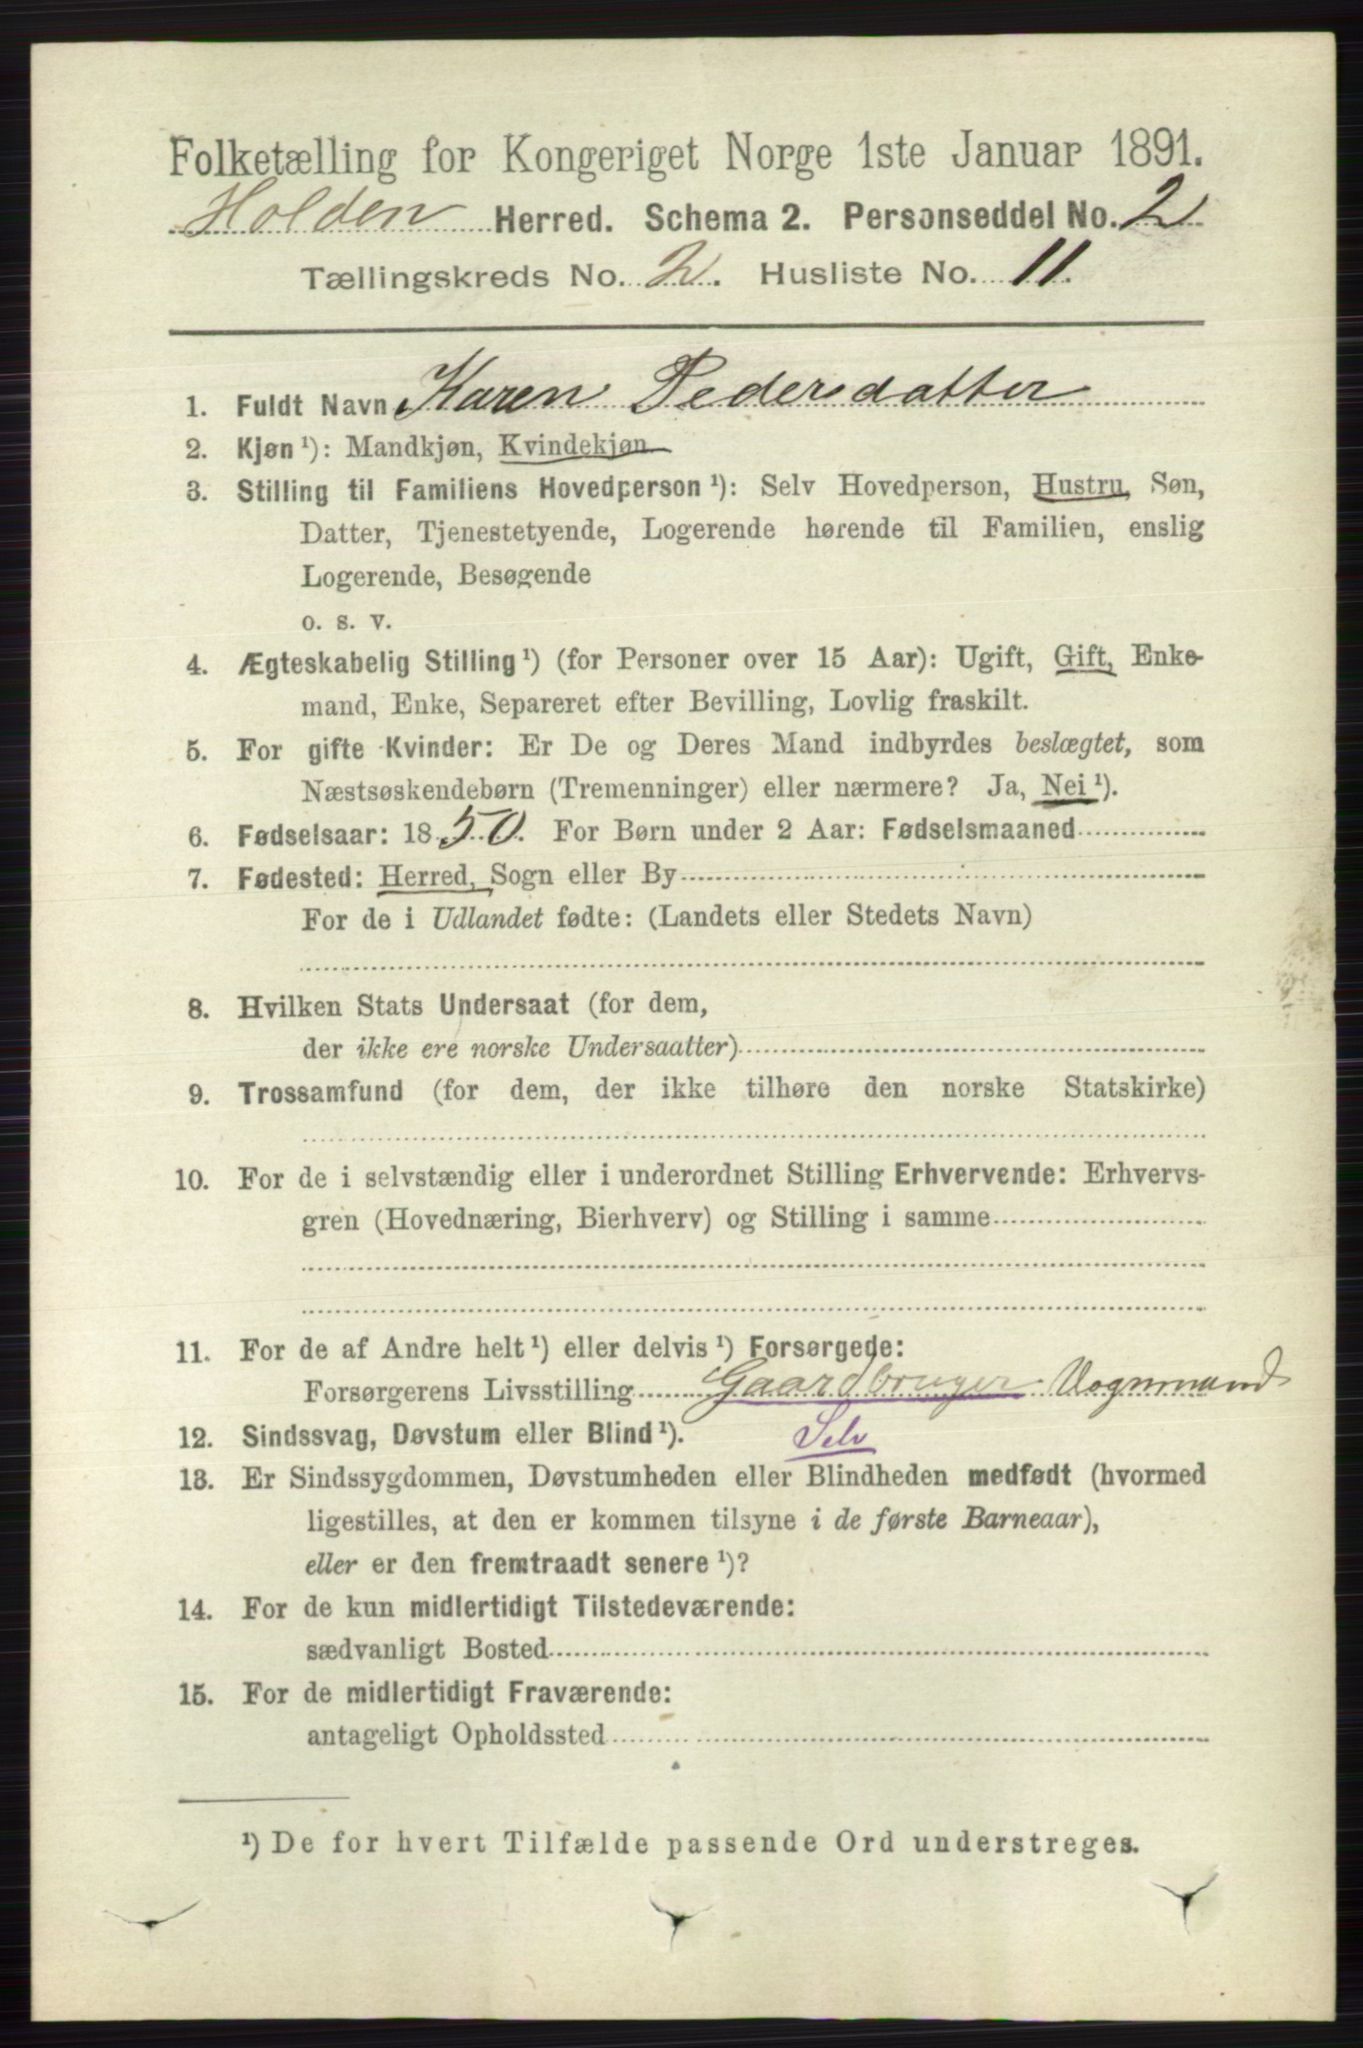 Folketælling for Kongeriget Norge 1ste Januar 1891.
Holden Herred. Schema 2. Personseddel No. 2
Tællingskreds No. 2. Husliste No. 11.
1. Fuldt Navn Karen Pedersdatter
2. Kjøn¹): Mandkjøn, Kvindekjøn
3. Stilling til Familiens Hovedperson¹): Selv Hovedperson, Hustru, Søn,
Datter, Tjenestetyende, Logerende hørende til Familien, enslig
Logerende, Besøgende
o. s. v.
4. Ægteskabelig Stilling¹) (for Personer over 15 Aar): Ugift, Gift, Enke-
mand, Enke, Separeret efter Bevilling, Lovlig fraskilt.
5. For gifte Kvinder: Er De og Deres Mand indbyrdes beslægtet, som
Næstsøskendebørn (Tremenninger) eller nærmere? Ja, Nei¹).
6. Fødselsaar: 1850. For Børn under 2 Aar: Fødselsmaaned
7. Fødested: Herred, Sogn eller By
For de i Udlandet fødte: (Landets eller Stedets Navn)
8. Hvilken Stats Undersaat (for dem,
der ikke ere norske Undersaatter)
9. Trossamfund (for dem, der ikke tilhøre den norske Statskirke)
10. For de i selvstændig eller i underordnet Stilling Erhvervende: Erhvervs-
gren (Hovednæring, Bierhverv) og Stilling i samme
11. For de af Andre helt¹) eller delvis¹) Forsørgede:
Forsørgerens Livsstilling Gaardbruger Vognmand
12. Sindssvag, Døvstum eller Blind¹). Selv
13. Er Sindssygdommen, Døvstumheden eller Blindheden medfødt (hvormed
ligestilles, at den er kommen tilsyne i de første Barneaar),
eller er den fremtraadt senere¹)?
14. For de kun midlertidigt Tilstedeværende:
sædvanligt Bosted
15. For de midlertidigt Fraværende:
antageligt Opholdssted
¹) De for hvert Tilfælde passende Ord understreges.